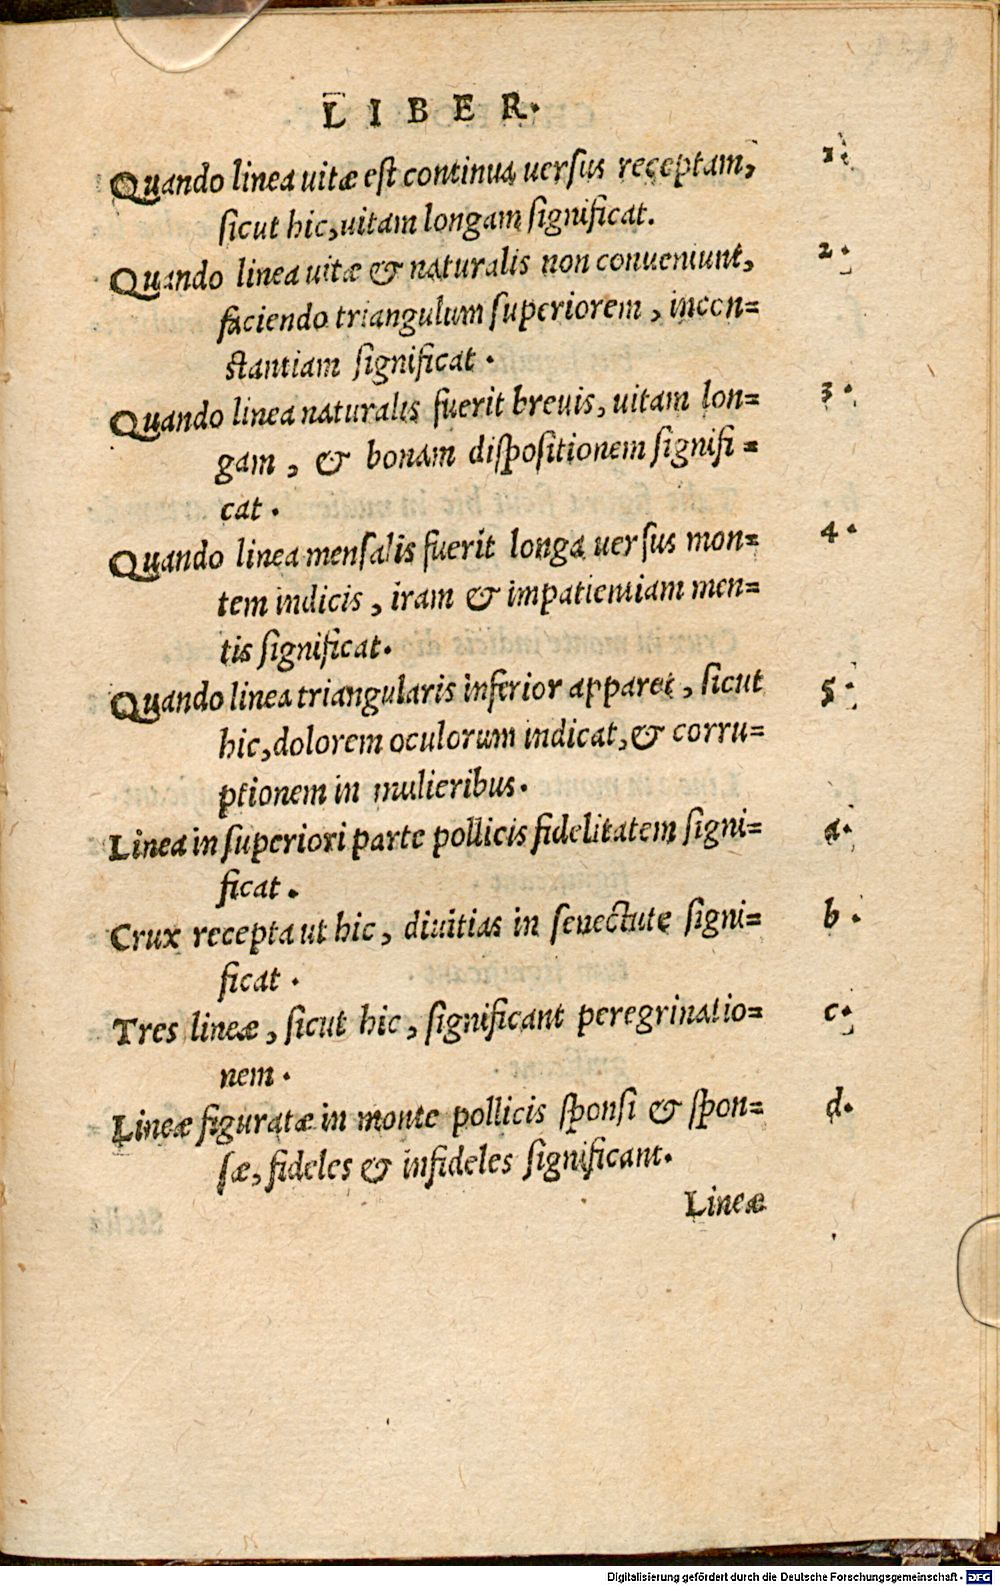 LIBER.
Quando linea uitæ est continua uersus receptam, 1.
sicut hic, uitam longam significat.
Quando linea uitæ & naturalis non conueniunt, 2.
faciendo triangulum superiorem, incon=
stantiam significat.
Quando linea naturalis fuerit breuis, uitam lon= 3.
gam, & bonam dispositionem signifi=
cat.
Quando linea mensalis fuerit longa uersus mon= 4.
tem indicis, iram & impatientiam men=
tis significat.
Quando linea triangularis inferior apparet, sicut 5.
hic, dolorem oculorum indicat, & corru=
ptionem in mulieribus.
Linea in superiori parte pollicis fidelitatem signi= a.
ficat.
Crux recepta ut hic, diuitias in senectute signi= b.
ficat.
Tres lineæ, sicut hic, significant peregrinatio= c.
nem.
Lineæ figuratæ in monte pollicis sponsi & spon= d.
sæ, fideles & infideles significant.
Lineæ
Digitalisierung gefördert durch die Deutsche Forschungsgemeinschaft - DFG